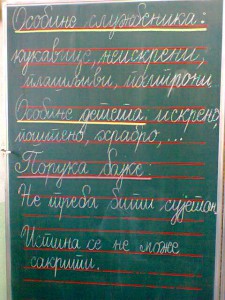 Особине службеника:
кукавице, неискрени,
плашљиви, полтрони
Особине детета: искрено,
поштено, храбро,...
Порука бајке:
Не треба бити сујетан.
Истина се не може
сакрити.